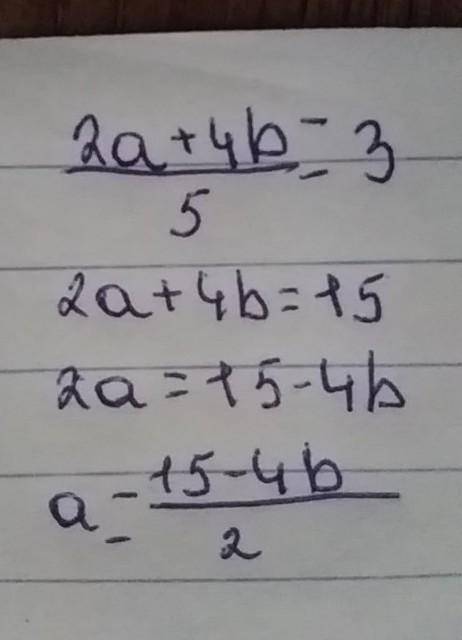 2a+4b/5 = 3
2a+4b=15
2a=15-4b
a=15-4b/2